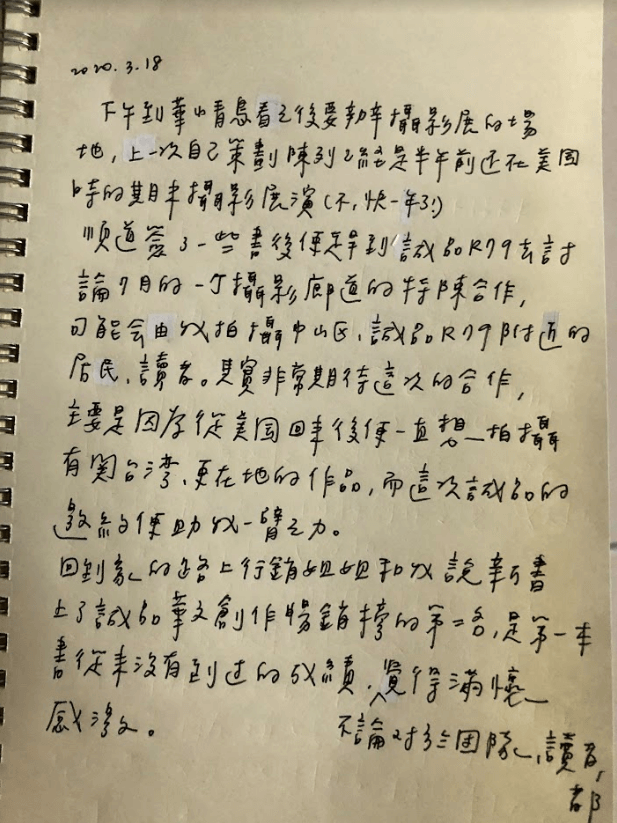 2020.3.18
下午到華山青鳥看之後要辦攝影展的場
地,上一次自己策劃陳列已經是半年前還在美国
時的期末攝影展演(不,快一年了!)
順道簽了一些書後便趕到誠品R79去討
論7月的一个攝影廊道的特陳合作,
可能会由我拍攝中山区、誠品R79附近的
居民、讀者。其實非常期待這次的合作,
主要是因為從美国回来後便一直想拍攝
有関台湾、更在地的作品,而這次誠品的
邀約便助我一臂之力。
回到家的路上行銷姐姐和我說新書
上了誠品華文創作暢銷榜的第二名,是第一本
書從来没有到过的成績,覺得滿懷
感激。
不論对於团隊、讀者,
都